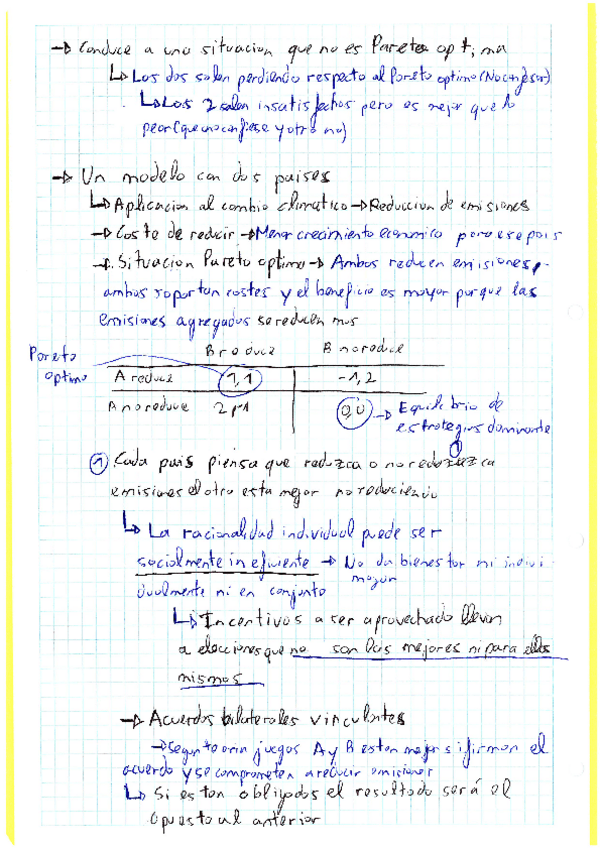 → Conduce a una situacion que no es Pareto optima
↳ Los dos salen perdiendo respecto al Pareto optimo (No confesar)
↳ Los 2 salen insatisfechos pero es mejor que lo
peor (que uno confiese y otro no)
→ Un modelo con dos paises
↳ Aplicacion al cambio climatico → Reduccion de emisiones
→ Coste de reducir → Menor crecimiento economico para ese pais
→ Situacion Pareto optimo → Ambos reducen emisiones,
ambos soportan costes y el beneficio es mayor porque las
emisiones agregadas se reducen mas
B reduce B no reduce
Pareto
optimo
A reduce 1,1 -1,2
A no reduce 2,-1 0,0 → Equilibrio de
estrategias dominante
①
① Cada pais piensa que reduzca o no reduzca
emisiones el otro esta mejor no reduciendo
↳ La racionalidad individual puede ser
socialmente ineficiente → No da bienestar ni indivi-
mayor
dualmente ni en conjunto
↳ Incentivos a ser aprovechado llevan
a elecciones que no son las mejores ni para ellos
mismos
→ Acuerdos bilaterales vinculantes
→ Segun teoria juegos A y B estan mejor si firman el
acuerdo y se comprometen a reducir emisiones
↳ Si estan obligados el resultado será el
opuesto al anterior